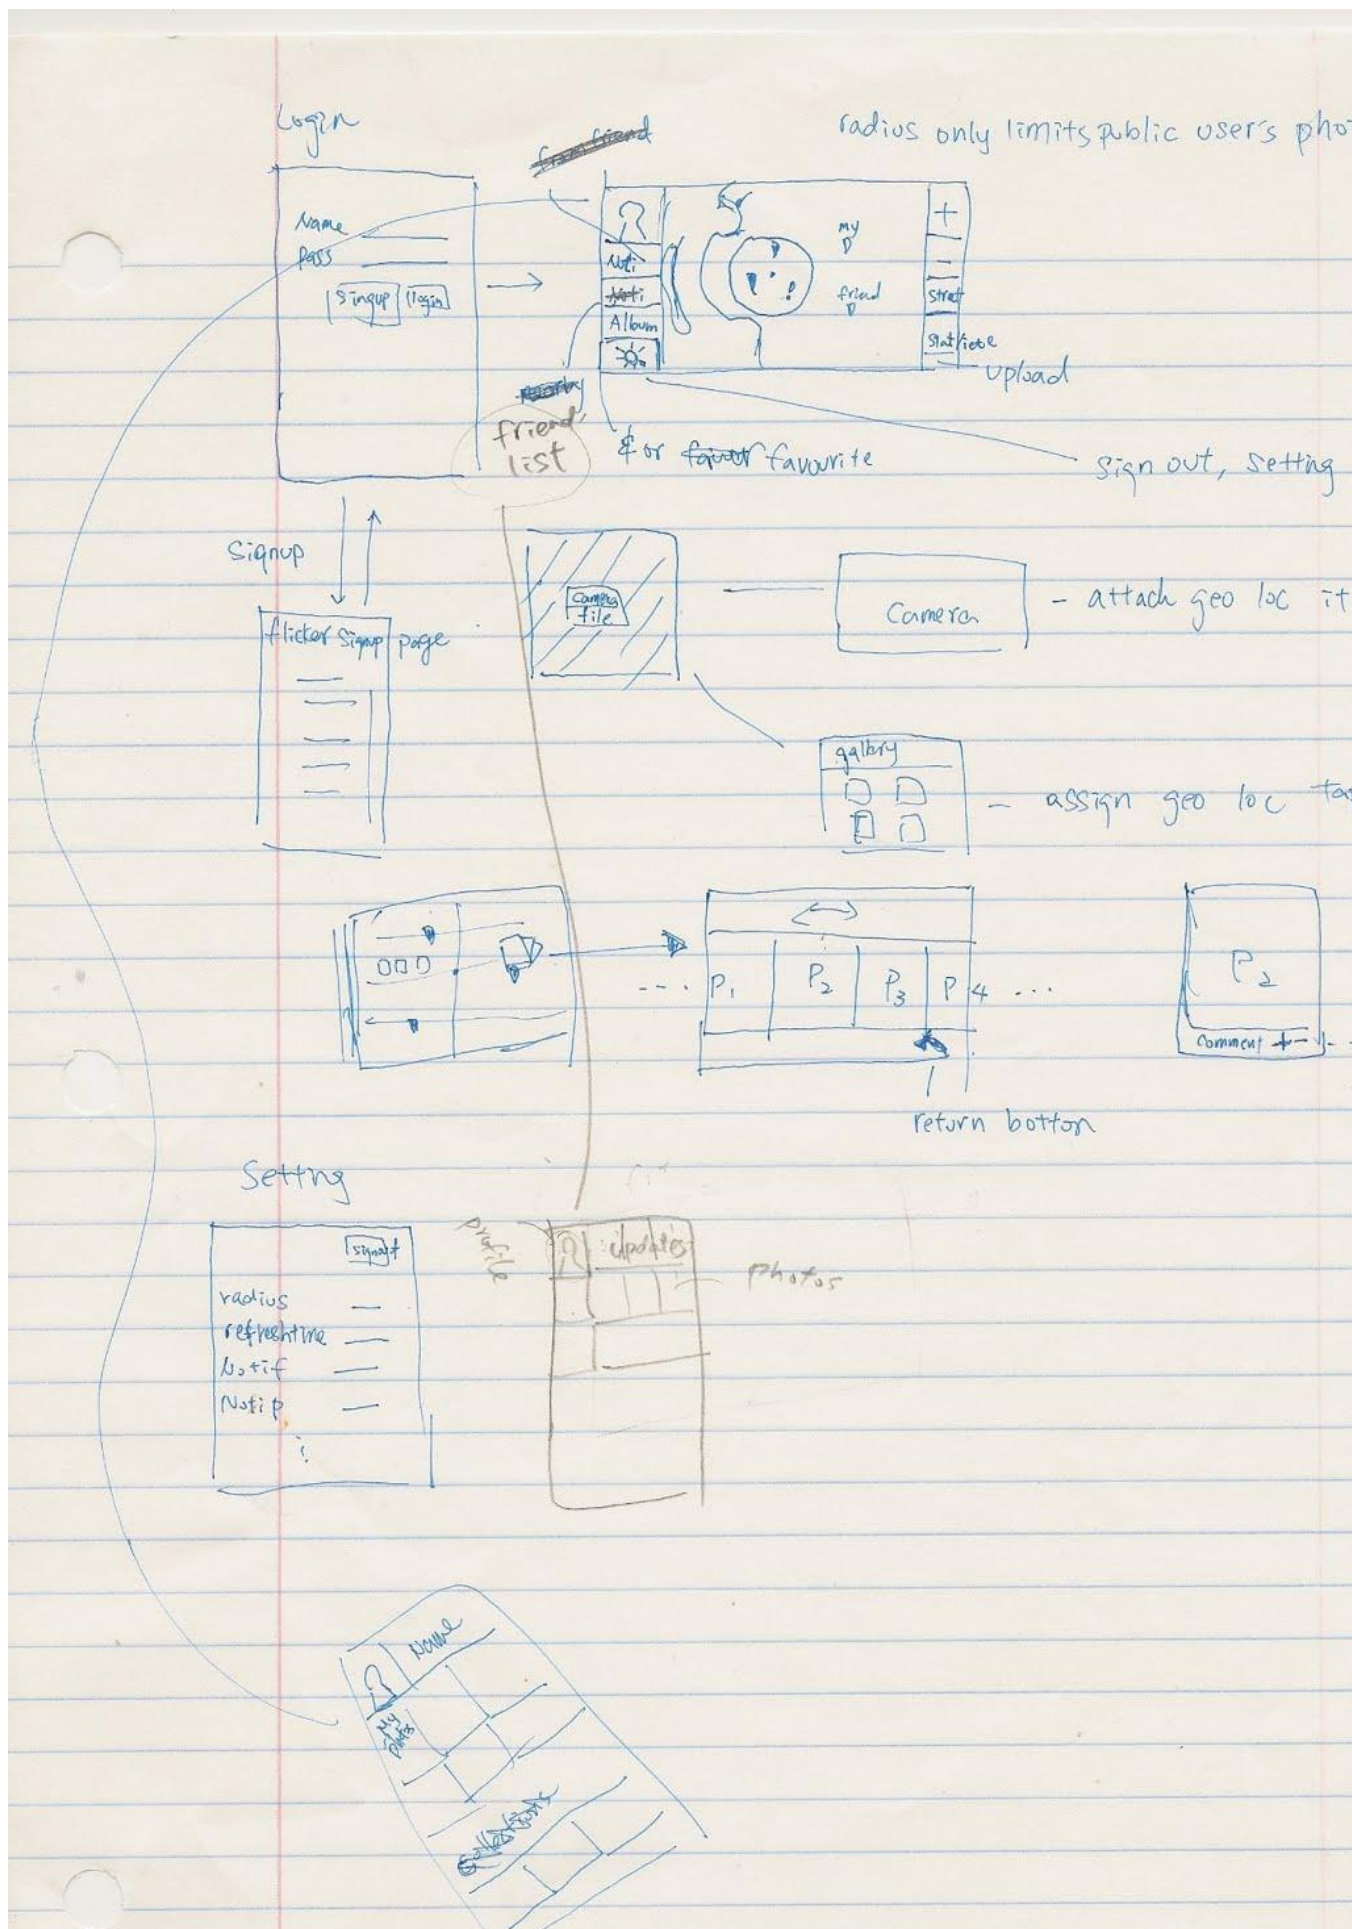 Login
from friend
radius only limits public user's phot
Name
Pass
singup login
Noti
Noti
Album
my
friend
+
-
street
upload
friend
list
& or favourite
sign out, setting
Signup
flicker signup page
camera
file
Camera
- attach geo loc it
gallery
- assign geo loc ta
.... P1 P2 P3 P4 ...
P2
Comment + -
return botton
Setting
signout
radius
refreshtime
Notif
Notip
profile
updates
photos
Name